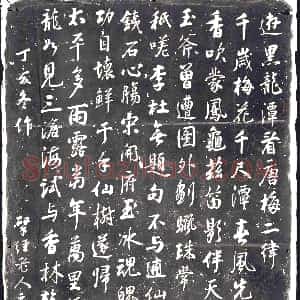 遊黑龍潭看唐梅二律
千歲梅花千潭春風先
香吹蒙鳳龜茲笛影伴天
玉斧曾遭圖外劃驪珠常
祇嗟李杜無題句不與逋仙
錢石心腸宋開府玉冰魂魄
功自壞鮮于手仙樹遂歸
太平多雨露當年萬里
龍如見三滄海試與香林
丁亥冬作
揅經老人元